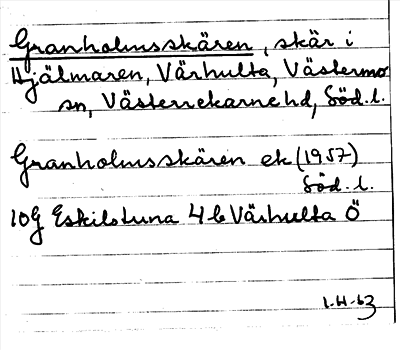 Granholmsskären, skär i
Hjälmaren, Värhulta, Västermo
sn, Västerrekarne hd, Söd. l.
Granholmsskären ek (1957)
Söd. l.
10G Eskilstuna 4 b Värhulta Ö
1-H-63